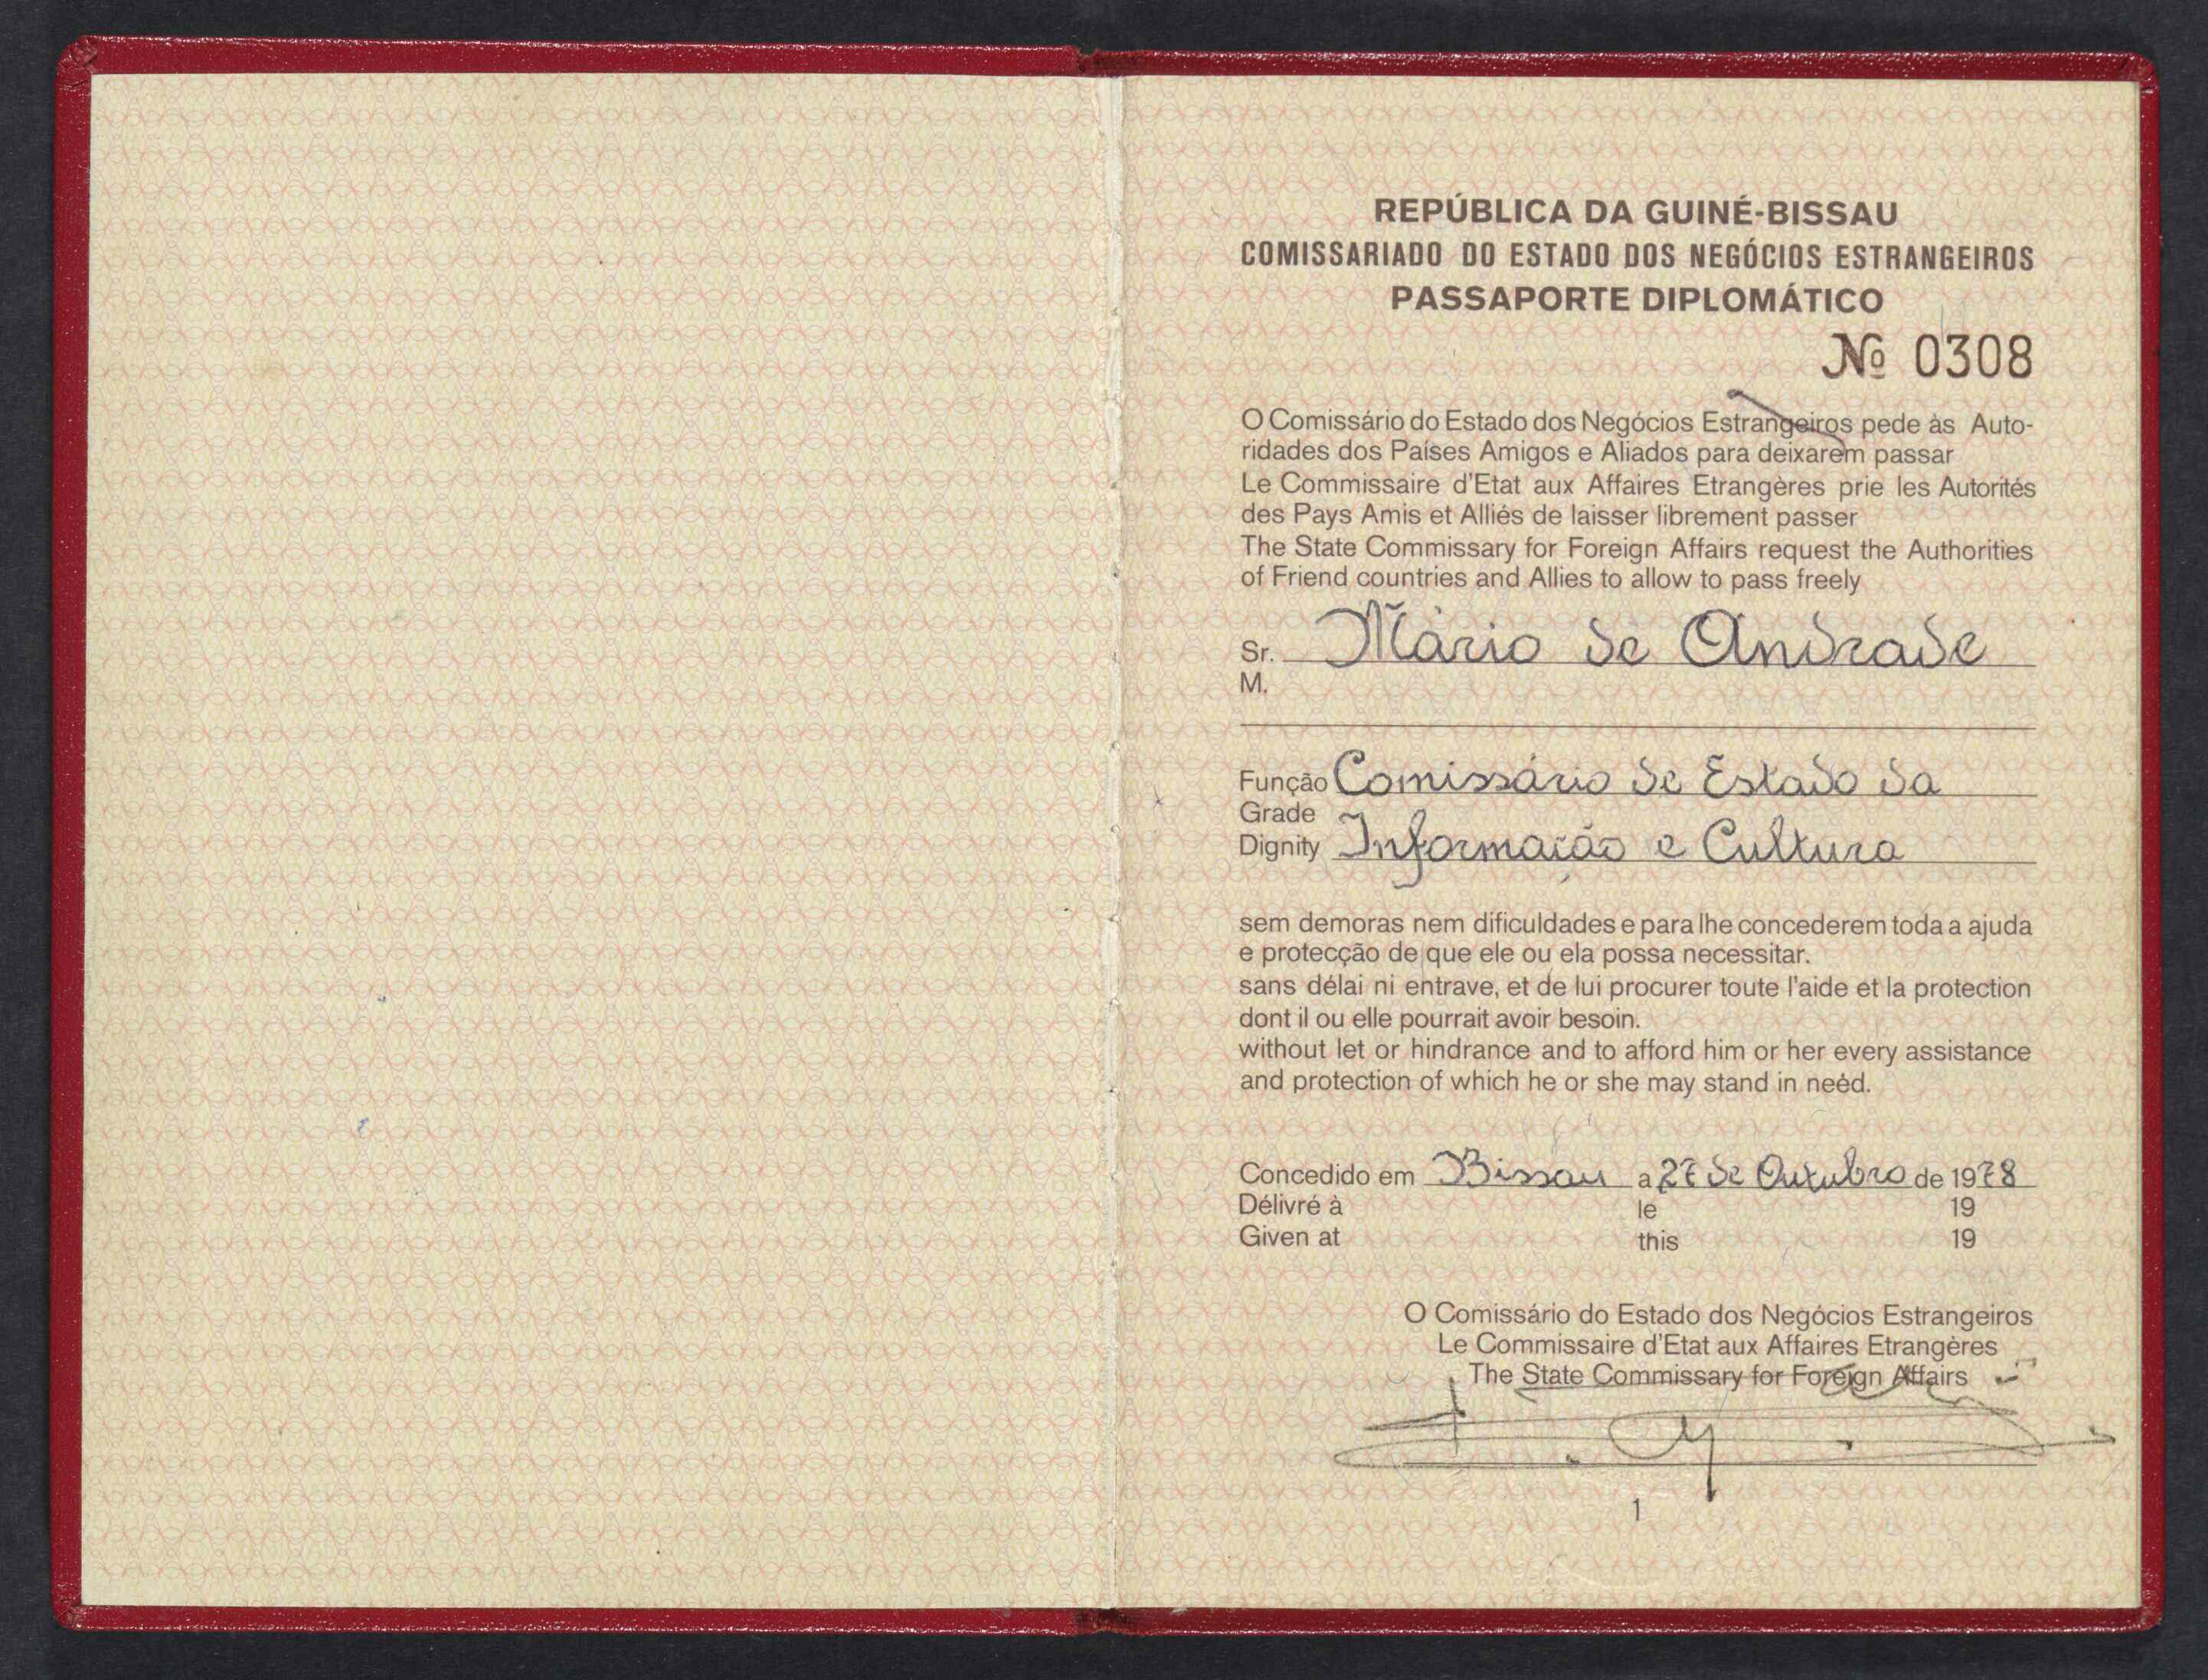 REPÚBLICA DA GUINÉ-BISSAU
COMISSARIADO DO ESTADO DOS NEGÓCIOS ESTRANGEIROS
PASSAPORTE DIPLOMÁTICO
Nº 0308
O Comissário do Estado dos Negócios Estrangeiros pede às Auto-
ridades dos Países Amigos e Aliados para deixarem passar
Le Commissaire d'Etat aux Affaires Etrangères prie les Autorités
des Pays Amis et Alliés de laisser librement passer
The State Commissary for Foreign Affairs request the Authorities
of Friend countries and Allies to allow to pass freely
Sr. Mário de Andrade
M.
Função Comissário de Estado da
Grade
Dignity Informação e Cultura
sem demoras nem dificuldades e para lhe concederem toda a ajuda
e protecção de que ele ou ela possa necessitar.
sans délai ni entrave, et de lui procurer toute l'aide et la protection
dont il ou elle pourrait avoir besoin.
without let or hindrance and to afford him or her every assistance
and protection of which he or she may stand in need.
Concedido em Bissau a 27 de Outubro de 1978
Délivré à le 19
Given at this 19
O Comissário do Estado dos Negócios Estrangeiros
Le Commissaire d'Etat aux Affaires Etrangères
The State Commissary for Foreign Affairs
1